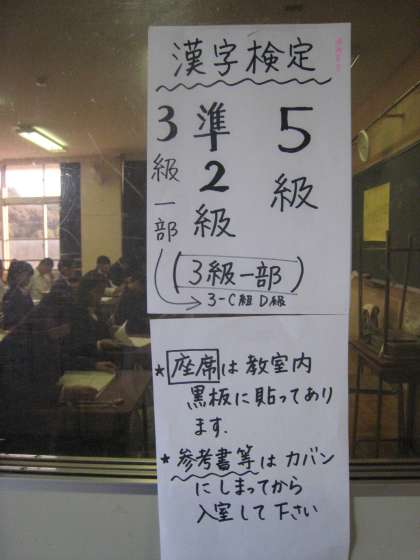 漢字検定
5級
準2級
3級一部
(3級一部)
3-C組 D級
★座席は教室内
黒板に貼ってあり
ます.
★参考書等はカバン
にしまってから
入室して下さい